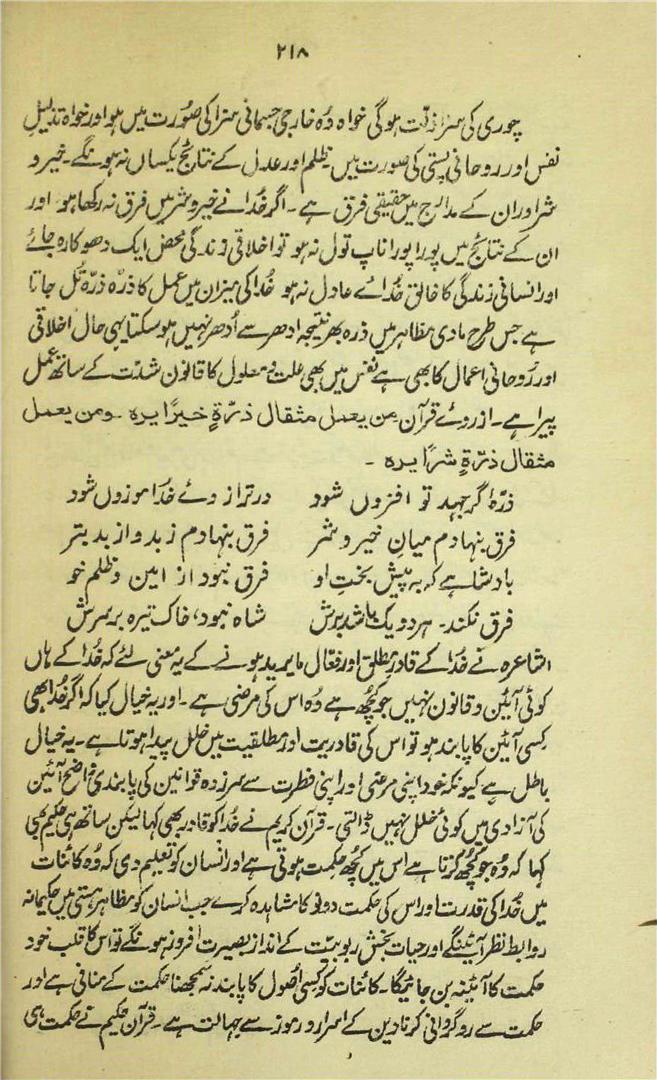 ۲۱۸
چوری کی سزا ذلّت ہوگی خواہ وُہ خارجی جسمانی سزا کی صُورت میں ہو اور خواہ تذلیلِ
نفس اور روحانی پستی کی صورت میں ظلم اور عدل کے نتائج یکساں نہ ہونگے۔ خیر و
شر اور ان کے مدارج میں حقیقی فرق ہے۔ اگر خُدا نے خیر و شر میں فرق نہ رکھا ہو اور
ان کے نتائج میں پورا پورا ناپ تول نہ ہو تو اخلاقی زندگی محض ایک دھوکا رہ جائے
اور انسانی زندگی کا خالق خُدائے عادل نہ ہو خُدا کی میزان میں عمل کا ذرّہ ذرّہ تُل جاتا
ہے جس طرح مادی مظاہر میں ذرہ بھر نتیجہ ادھر سے اُدھر نہیں ہو سکتا یہی حال اخلاقی
اور رُوحانی اعمال کا بھی ہے نفس میں بھی علت و معلول کا قانون شدّت کے ساتھ عمل
پیرا ہے۔ ازروئے قرآن من یعمل مثقال ذرّةٍ خیرًا یرہ ۔ ومن یعمل
مثقال ذرّةٍ شرًا یرہ ۔
ذرّۂ گر جہد تو افزوں شود درترازوئے خُدا موزوں شود
فرق بنہادم میانِ خیر و شر فرق بنہادم ز بد و از بد بتر
بادشاہے کہ بہ پیش بختِ او فرق نبود از امین و ظلم خو
فرق نکند۔ ہر دو یک باشد برش شاہ نبود، خاک تیرہ بر سرش
اشاعرہ نے خُدا کے قادر مطلق اور فعّال مایرید ہونے کے یہ معنی لئے کہ خُدا کے ہاں
کوئی آئین و قانون نہیں جو کچُھ ہے وُہ اس کی مرضی ہے۔ اور یہ خیال کیا کہ اگر خُدا بھی
کسی آئین کا پابند ہو تو اس کی قادریت اور مطلقیت میں خلل پیدا ہوتا ہے۔ یہ خیال
باطل ہے کیونکہ خود اپنی مرضی اور اپنی فطرت سے سرزدہ قوانین کی پابندی واضح آئین
کی آزادی میں کوئی خلل نہیں ڈالتی۔ قرآن کریم نے خُدا کو قادر بھی کہا لیکن ساتھ ہی حکیم بھی
کہا کہ وُہ جو کچُھ کرتا ہے اس میں کچُھ حکمت ہوتی ہے اور انسان کو تعلیم دی کہ وُہ کائنات
میں خُدا کی قدرت اور اس کی حکمت دونو کا مشاہدہ کرے جب انسان کو مظاہر ہستی میں حکیمانہ
روابط نظر آئینگے اور حیات بخش ربوبیّت کے انداز بصیرت افروز ہونگے تو اس کا قلب خود
حکمت کا آئینہ بن جائیگا۔ کائنات کو کسی اُصول کا پابند نہ سمجھنا حکمت کے منافی ہے اور
حکمت سے روگردانی کرنا دین کے اسرار و رموز سے جہالت ہے۔ قرآن حکیم نے حکمت ہی